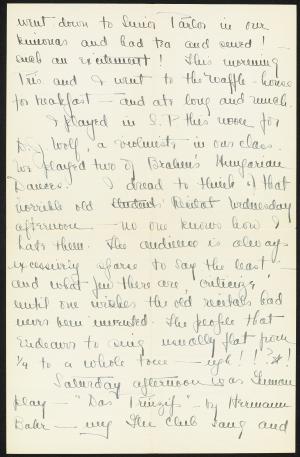 went down to Senior Parlor in our
kimonas and had tea and sewed! -
such an excitement! This morning
Tris and I went to the waffle-house
for breakfast - and ate long and much.
I played in S.T this noon for
D. Wolf, a violinist in our class.
We played two of Brahm's Hungarian
Dances. I dread to think of that
horrible old Students' Recital Wednesday
afternoon - no one knows how I
hate them. The audience is always
excessively sparse to say the least -
and what few there are, 'criticize'
until one wishes the old recitals had
never been invented. The people that
endeavor to sing usually flat from
1/4 to a whole tone - ugh!!?*!
Saturday afternoon was German
play - "Das Prinzip" - by Hermann
Bahr - The Glee Club sang and